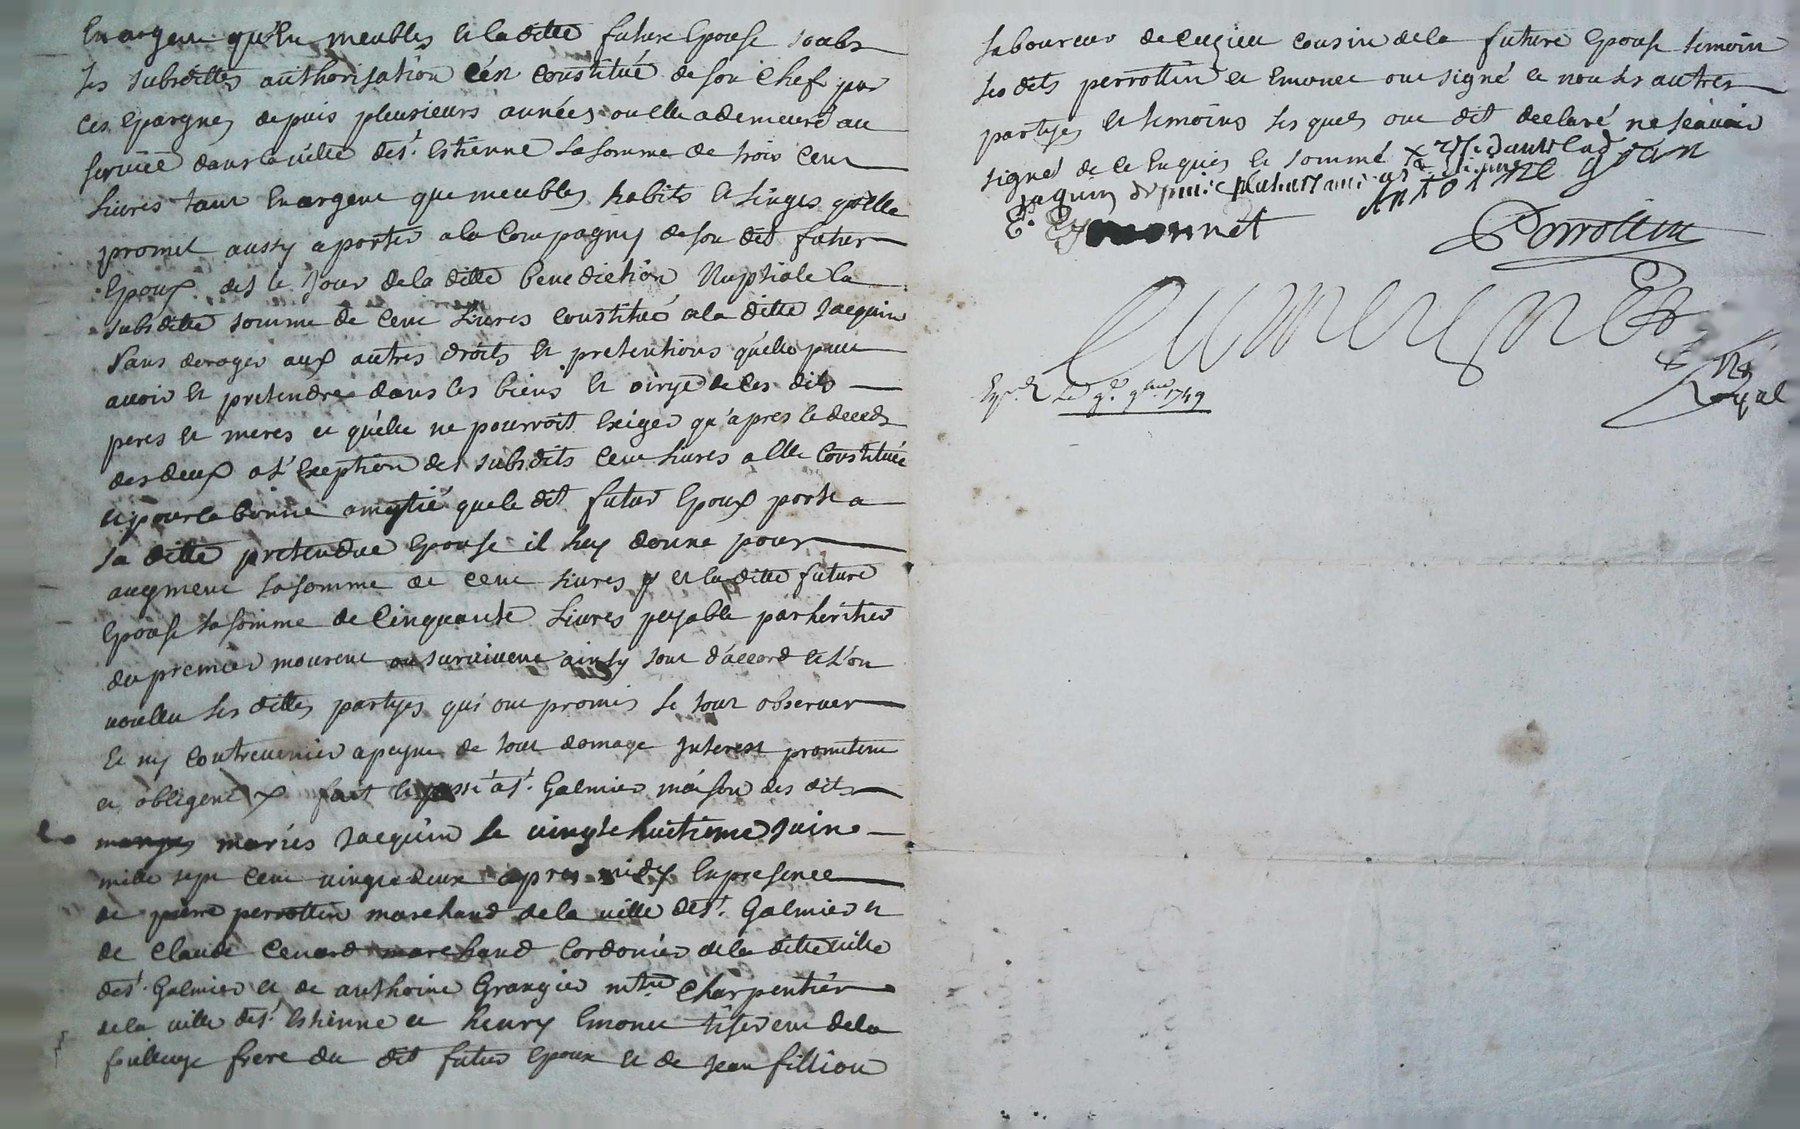 En argent qu'En meubles et la ditte future Epouse soubs
les subsdittes authorisation s'est constitué de son chef par
ces Epargnes depuis plusieurs années ou elle a demeuré au
service dans la ville de st. Estienne la somme de trois cent
livres tant En argent que meubles habits et linges qu'elle
promet aussy aporter a la Compagny de son dit futur
Epoux des le jour de la ditte benediction Nuptiale la
subsditte somme de cent livres constitué a la ditte Jacquin
sans deroger aux autres droits et pretentions qu'elle peut
avoir et pretendre dans les biens et de ces dits
peres et meres et qu'elle ne pourroit Exiger qu'apres le deceds
des deux a l'Exeption des subsdits cent livres a elle constitué
et pour la bonne amytié que le dit futur Epoux porte a
sa ditte pretendue Epouse il luy donne pour
augment la somme de cent livres et la ditte future
Epouse la somme de Cinquante livres payable par heritier
du premier mourant au survivant ainsy sont d'accord et l'on
voullu les dittes partyes qui ont promis le tout observer
Et ny contrevenir a peyne de tout domage Interest promettent
et obligent x fait et passé a st. Galmier maison des dits
mariés Jacquin le vingt huitieme Juin
mille sept cent vingt deux apres midy En presence
de pierre perrottin marchand de la ville de st. Galmier et
de Claude Cenard marchand Cordonier de la ditte ville
de st. Galmier et de anthoine Grangier mtre Charpentier
de la ville de st. Estienne et henry Emonet tiserent de la
fouilleuze frere du dit futur Epoux et de Jean fillion
laboureur de Cuzieu cousin de la future Epouse temoin
les dits perrottin et Emonet ont signé et non les autres
partyes et temoins les quels ont dit declaré ne scavoir
signé de ce Enquis et sommé x
Jaquin depuis plusieurs
Antoine
E. Eymonnet
Perrottin
Nre
Royal
1749